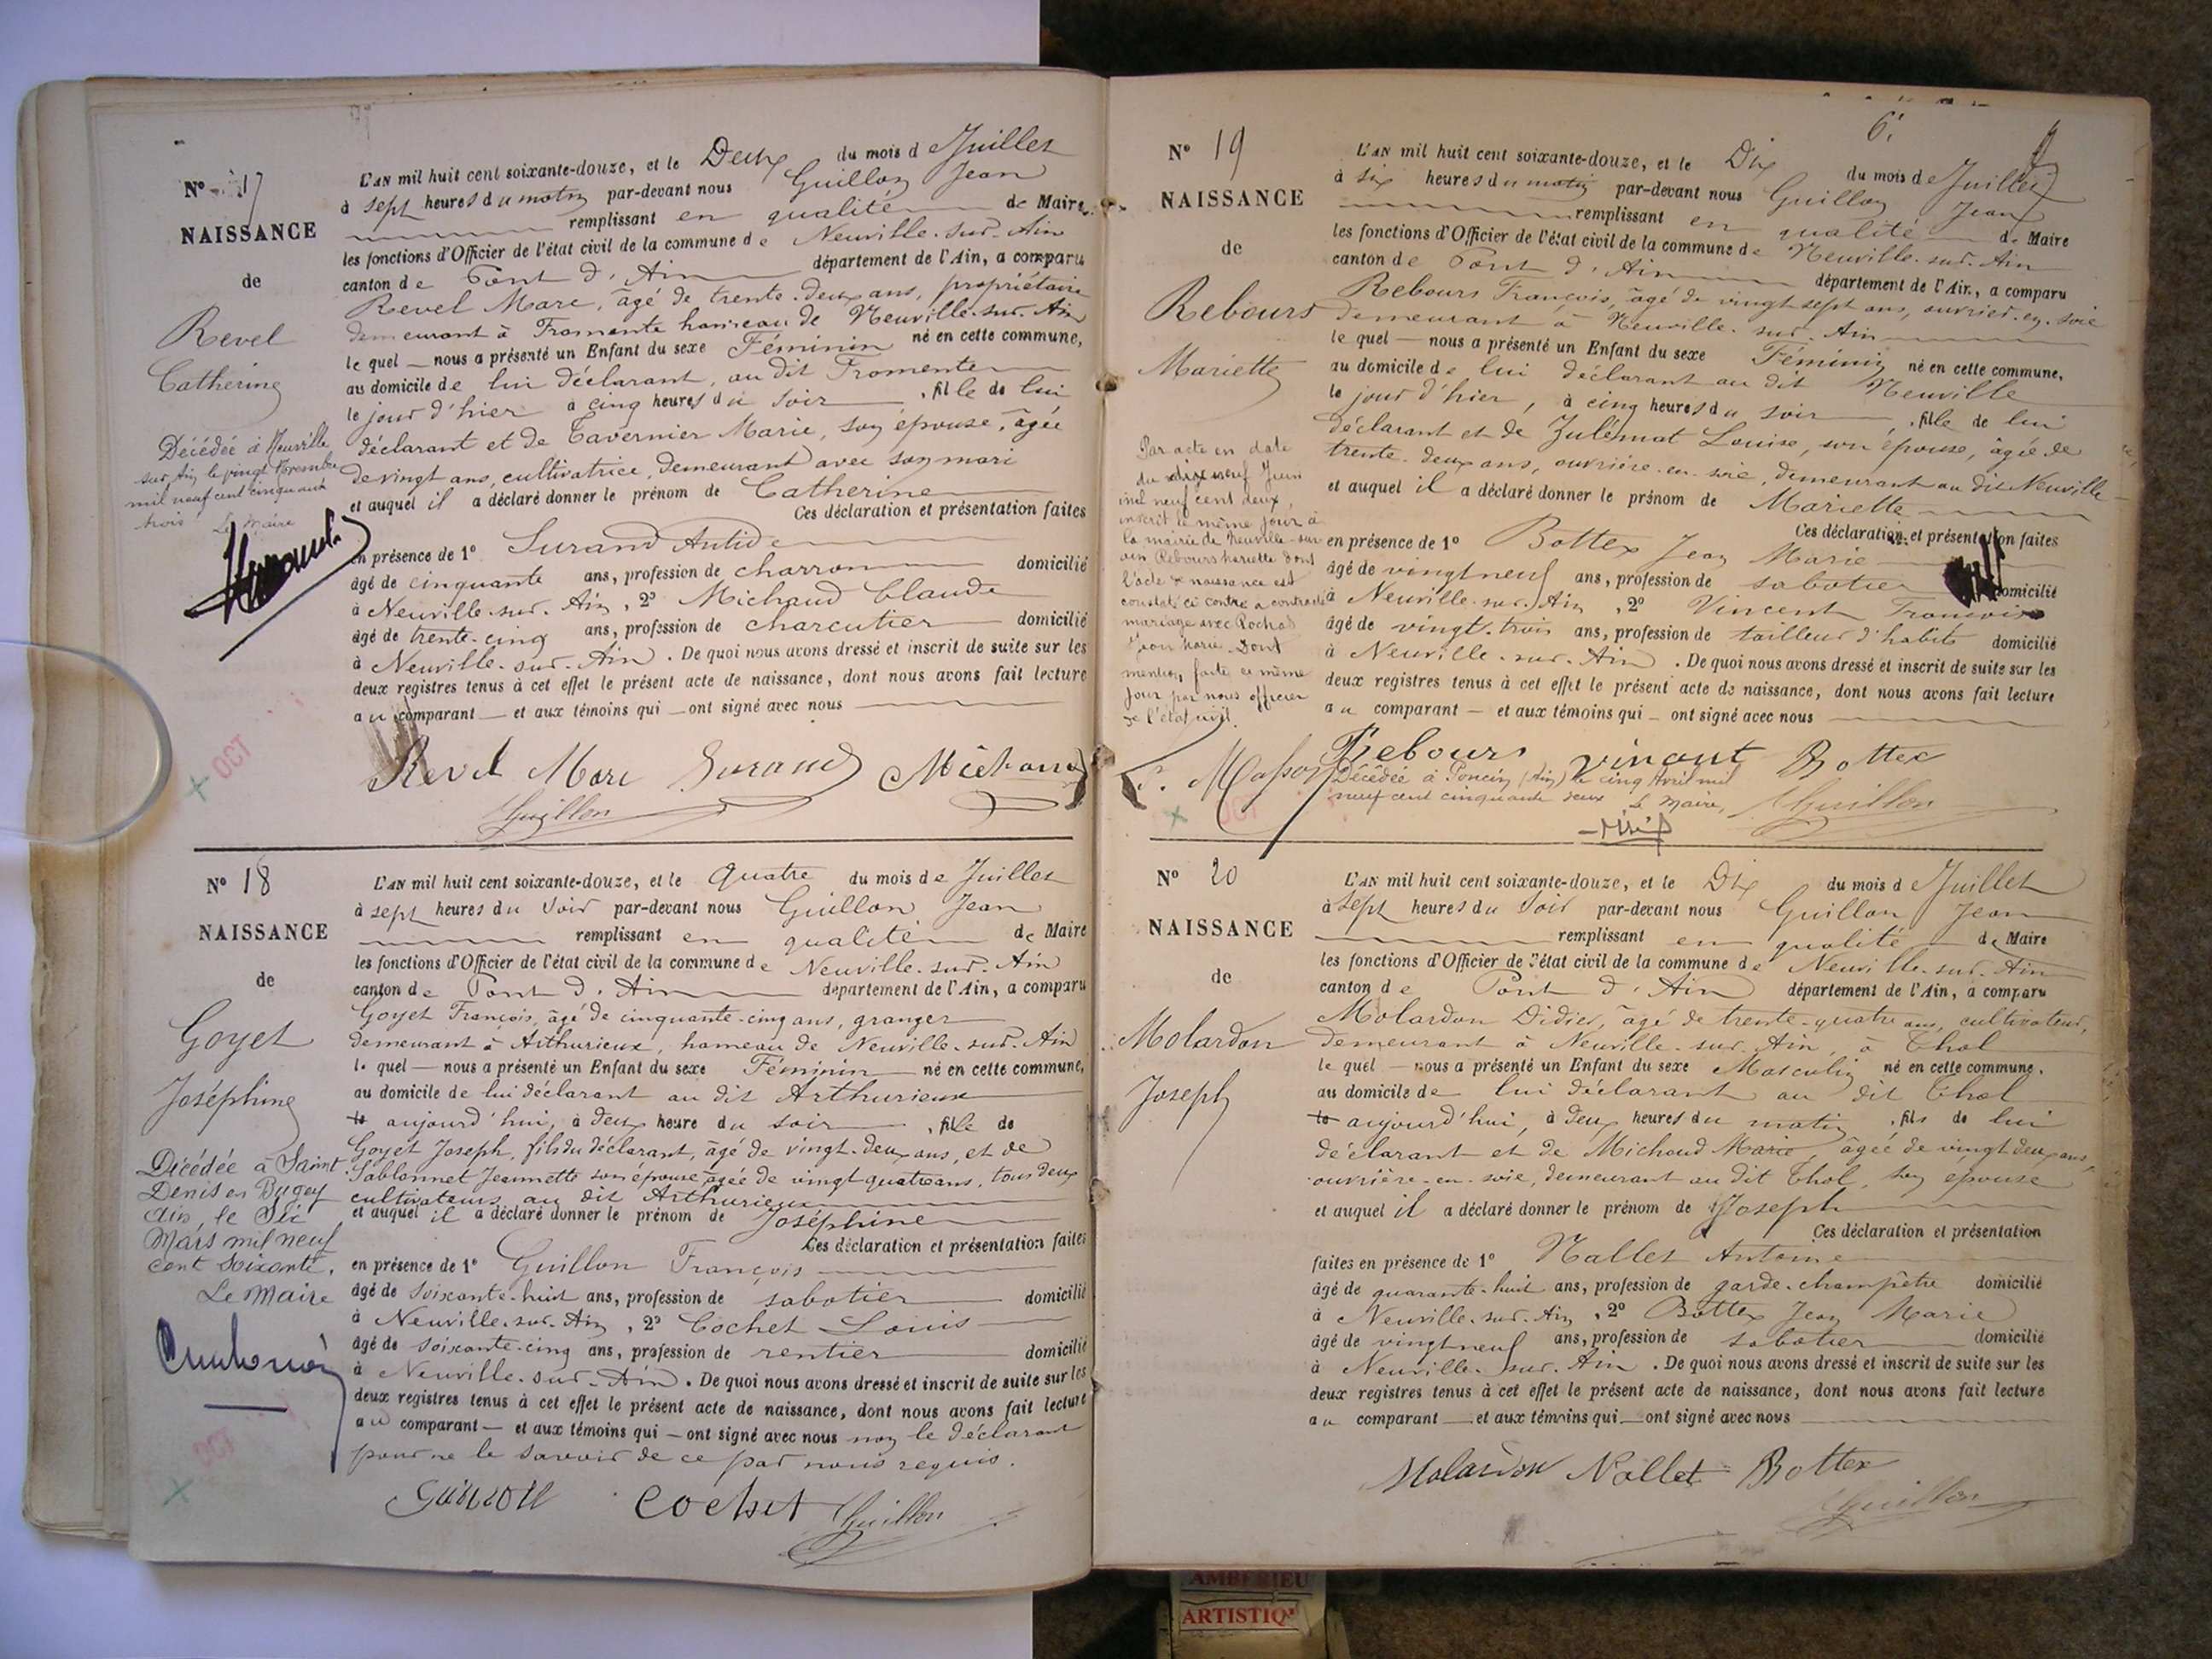 N° 17
NAISSANCE
de
Revel
Catherine
Décédée à Neuville
sur Ain le vingt Novembre
mil neuf cent cinquante
trois Le Maire
L'AN mil huit cent soixante-douze, et le Deux du mois de Juillet
à sept heures du matin par-devant nous Guillon Jean
remplissant en qualité de Maire
les fonctions d'Officier de l'état civil de la commune de Neuville-sur-Ain
canton de Pont d'Ain département de l'Ain, a comparu
Revel Marc, âgé de trente-deux ans, propriétaire
demeurant à Fromente hameau de Neuville-sur-Ain
le quel nous a présenté un Enfant du sexe Féminin né en cette commune,
au domicile de lui déclarant, au dit Fromente
le jour d'hier à cinq heures du soir, fille de lui
déclarant et de Tavernier Marie, son épouse, âgée
de vingt ans, cultivatrice, demeurant avec son mari
et auquel il a déclaré donner le prénom de Catherine
Ces déclaration et présentation faites
en présence de 1° Surand Antide
âgé de cinquante ans, profession de charron domicilié
à Neuville-sur-Ain, 2° Michaud Claude
âgé de trente-cinq ans, profession de charcutier domicilié
à Neuville-sur-Ain. De quoi nous avons dressé et inscrit de suite sur les
deux registres tenus à cet effet le présent acte de naissance, dont nous avons fait lecture
au comparant et aux témoins qui ont signé avec nous
Revel Marc Surand Michaud
Guillon
OCT
N° 18
NAISSANCE
de
Goyet
Joséphine
Décédée à Saint
Denis en Bugey
Ain, le
Mars mil neuf
cent soixante.
Le Maire
L'AN mil huit cent soixante-douze, et le Quatre du mois de Juillet
à sept heures du soir par-devant nous Guillon Jean
remplissant en qualité de Maire
les fonctions d'Officier de l'état civil de la commune de Neuville-sur-Ain
canton de Pont d'Ain département de l'Ain, a comparu
Goyet François, âgé de cinquante-cinq ans, granger
demeurant à Arthurieux, hameau de Neuville-sur-Ain
le quel nous a présenté un Enfant du sexe Féminin né en cette commune,
au domicile de lui déclarant au dit Arthurieux
le aujourd'hui, à deux heure du soir, fille de
Goyet Joseph, fils du déclarant, âgé de vingt-deux ans, et de
Sablonnet Jeannette son épouse âgée de vingt quatre ans, tous deux
cultivateurs au dit Arthurieux
et auquel il a déclaré donner le prénom de Joséphine
Ces déclaration et présentation faites
en présence de 1° Guillon François
âgé de soixante-huit ans, profession de sabotier domicilié
à Neuville-sur-Ain, 2° Cochet Louis
âgé de soixante-cinq ans, profession de rentier domicilié
à Neuville-sur-Ain. De quoi nous avons dressé et inscrit de suite sur les
deux registres tenus à cet effet le présent acte de naissance, dont nous avons fait lecture
au comparant et aux témoins qui ont signé avec nous non le déclarant
pour ne le savoir de ce par nous requis.
Guillon Cochet Guillon
OCT
6
N° 19
NAISSANCE
de
Rebours
Mariette
Par acte en date
du dix neuf Juin
mil neuf cent deux,
inscrit le même jour à
la mairie de Neuville-sur-
ain Rebours Mariette dont
l'acte de naissance est
constaté ci contre a contracté
mariage avec Rochas
Jean Marie. Dont
mention faite ce même
jour par nous officier
de l'état civil.
L'AN mil huit cent soixante-douze, et le Dix du mois de Juillet
à six heures du matin par-devant nous Guillon Jean
remplissant en qualité de Maire
les fonctions d'Officier de l'état civil de la commune de Neuville-sur-Ain
canton de Pont d'Ain département de l'Ain, a comparu
Rebours François, âgé de vingt sept ans, ouvrier-en-soie
demeurant à Neuville-sur-Ain
le quel nous a présenté un Enfant du sexe Féminin né en cette commune,
au domicile de lui déclarant au dit Neuville
le jour d'hier, à cinq heures du soir, fille de lui
déclarant et de Zulémat Louise, son épouse, âgée de
trente-deux ans, ouvrière-en-soie, demeurant au dit Neuville
et auquel il a déclaré donner le prénom de Mariette
Ces déclaration et présentation faites
en présence de 1° Bottex Jean Marie
âgé de vingt neuf ans, profession de sabotier domicilié
à Neuville-sur-Ain, 2° Vincent François
âgé de vingt-trois ans, profession de tailleur d'habits domicilié
à Neuville-sur-Ain. De quoi nous avons dressé et inscrit de suite sur les
deux registres tenus à cet effet le présent acte de naissance, dont nous avons fait lecture
au comparant et aux témoins qui ont signé avec nous
Rebours vincent Bottex
Décédée à Poncin (Ain) le cinq Avril mil
neuf cent cinquante deux Le Maire, Guillon
N° 20
NAISSANCE
de
Molardon
Joseph
L'AN mil huit cent soixante-douze, et le Dix du mois de Juillet
à sept heures du soir par-devant nous Guillon Jean
remplissant en qualité de Maire
les fonctions d'Officier de l'état civil de la commune de Neuville-sur-Ain
canton de Pont d'Ain département de l'Ain, a comparu
Molardon Didier, âgé de trente-quatre ans, cultivateur,
demeurant à Neuville-sur-Ain, à Thol
le quel nous a présenté un Enfant du sexe Masculin né en cette commune,
au domicile de lui déclarant au dit Thol
le aujourd'hui, à deux heures du matin, fils de lui
déclarant et de Michaud Marie, âgée de vingt deux ans,
ouvrière-en-soie, demeurant au dit Thol, son épouse
et auquel il a déclaré donner le prénom de Joseph
Ces déclaration et présentation
faites en présence de 1° Nallet Antoine
âgé de quarante-huit ans, profession de garde-champêtre domicilié
à Neuville-sur-Ain, 2° Bottex Jean Marie
âgé de vingt neuf ans, profession de sabotier domicilié
à Neuville-sur-Ain. De quoi nous avons dressé et inscrit de suite sur les
deux registres tenus à cet effet le présent acte de naissance, dont nous avons fait lecture
au comparant et aux témoins qui ont signé avec nous
Molardon Nallet Bottex
Guillon
AMBERIEU
ARTISTIQ